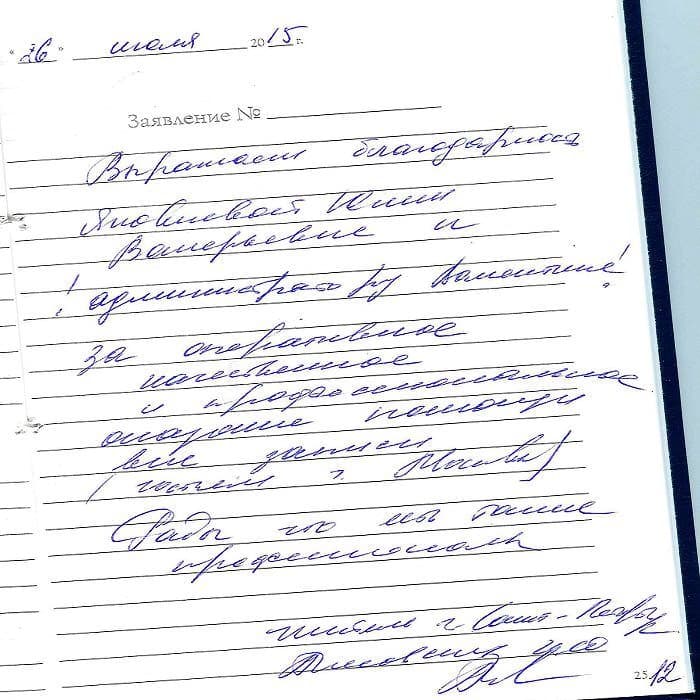 "26" июля 2015 г.
Заявление №
Выражаем благодарность
Яковлевой Юлии
Валерьевне и
! администратору Валентине!
за оперативное
качественное
и профессиональное
оказание помощи
вне записи
(гостям г. Москвы)
Рады что мы такие
профессионалы
жители г. Санкт-Петербур
25 12